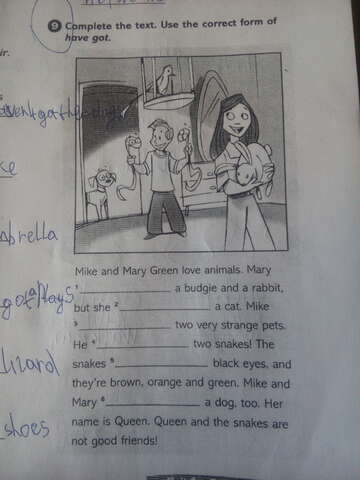 9 Complete the text. Use the correct form of
have got.
Mike and Mary Green love animals. Mary
1 ____________ a budgie and a rabbit,
but she 2 ____________ a cat. Mike
3 ____________ two very strange pets.
He 4 ____________ two snakes! The
snakes 5 ____________ black eyes, and
they're brown, orange and green. Mike and
Mary 6 ____________ a dog, too. Her
name is Queen. Queen and the snakes are
not good friends!
ir.
brella
lizard
shoes